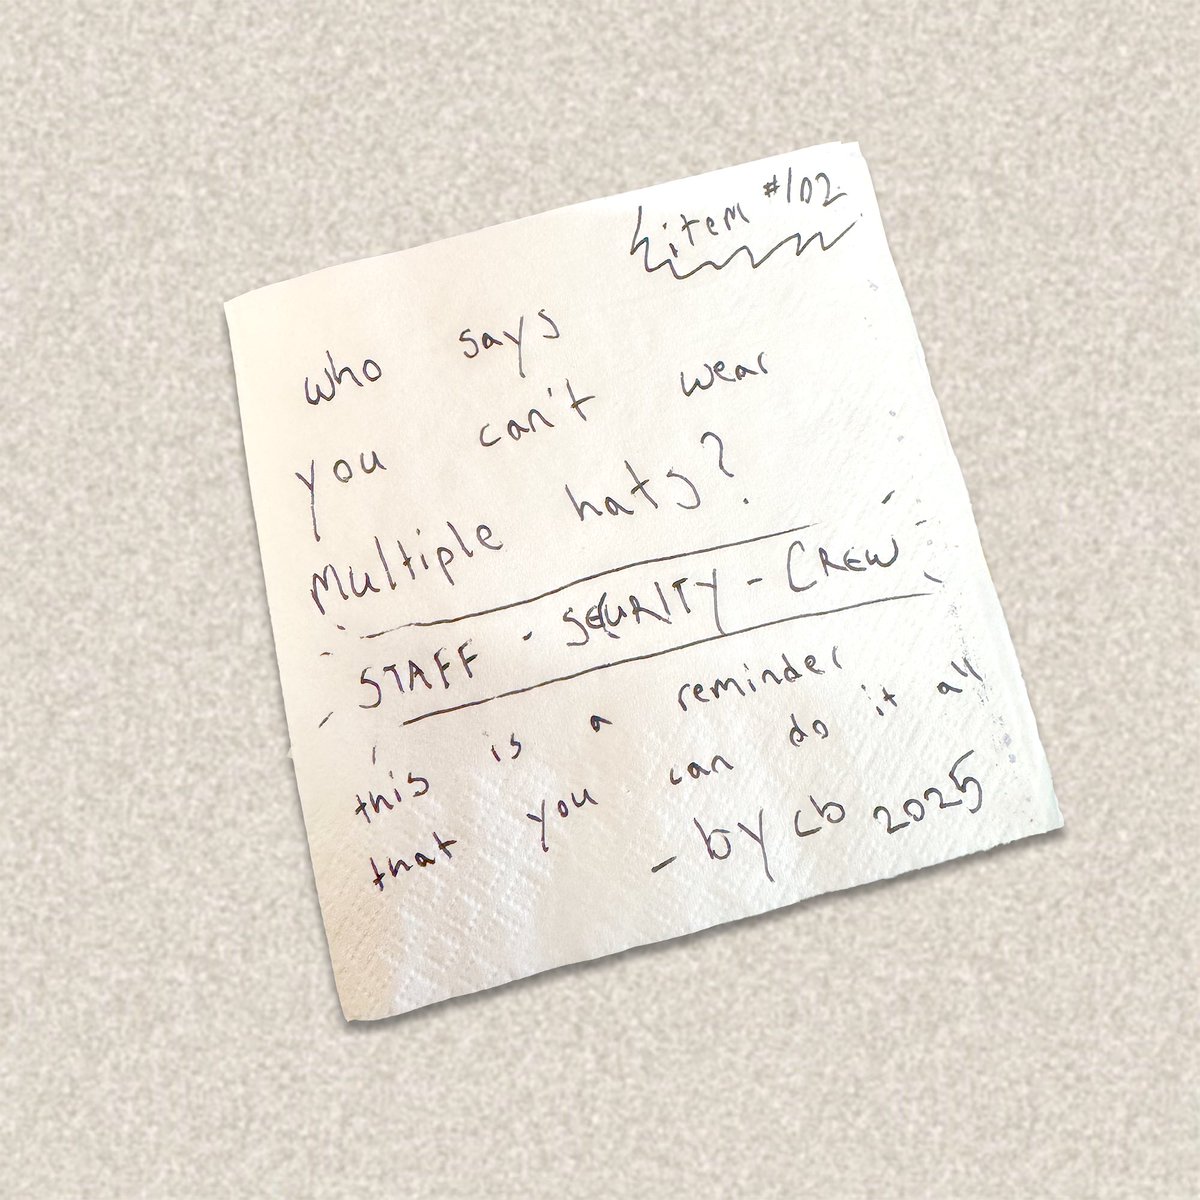 item #102
who says
you can't wear
Multiple hats?
STAFF - SECURITY - CREW
this is a reminder
that you can do it all
- by cb 2025